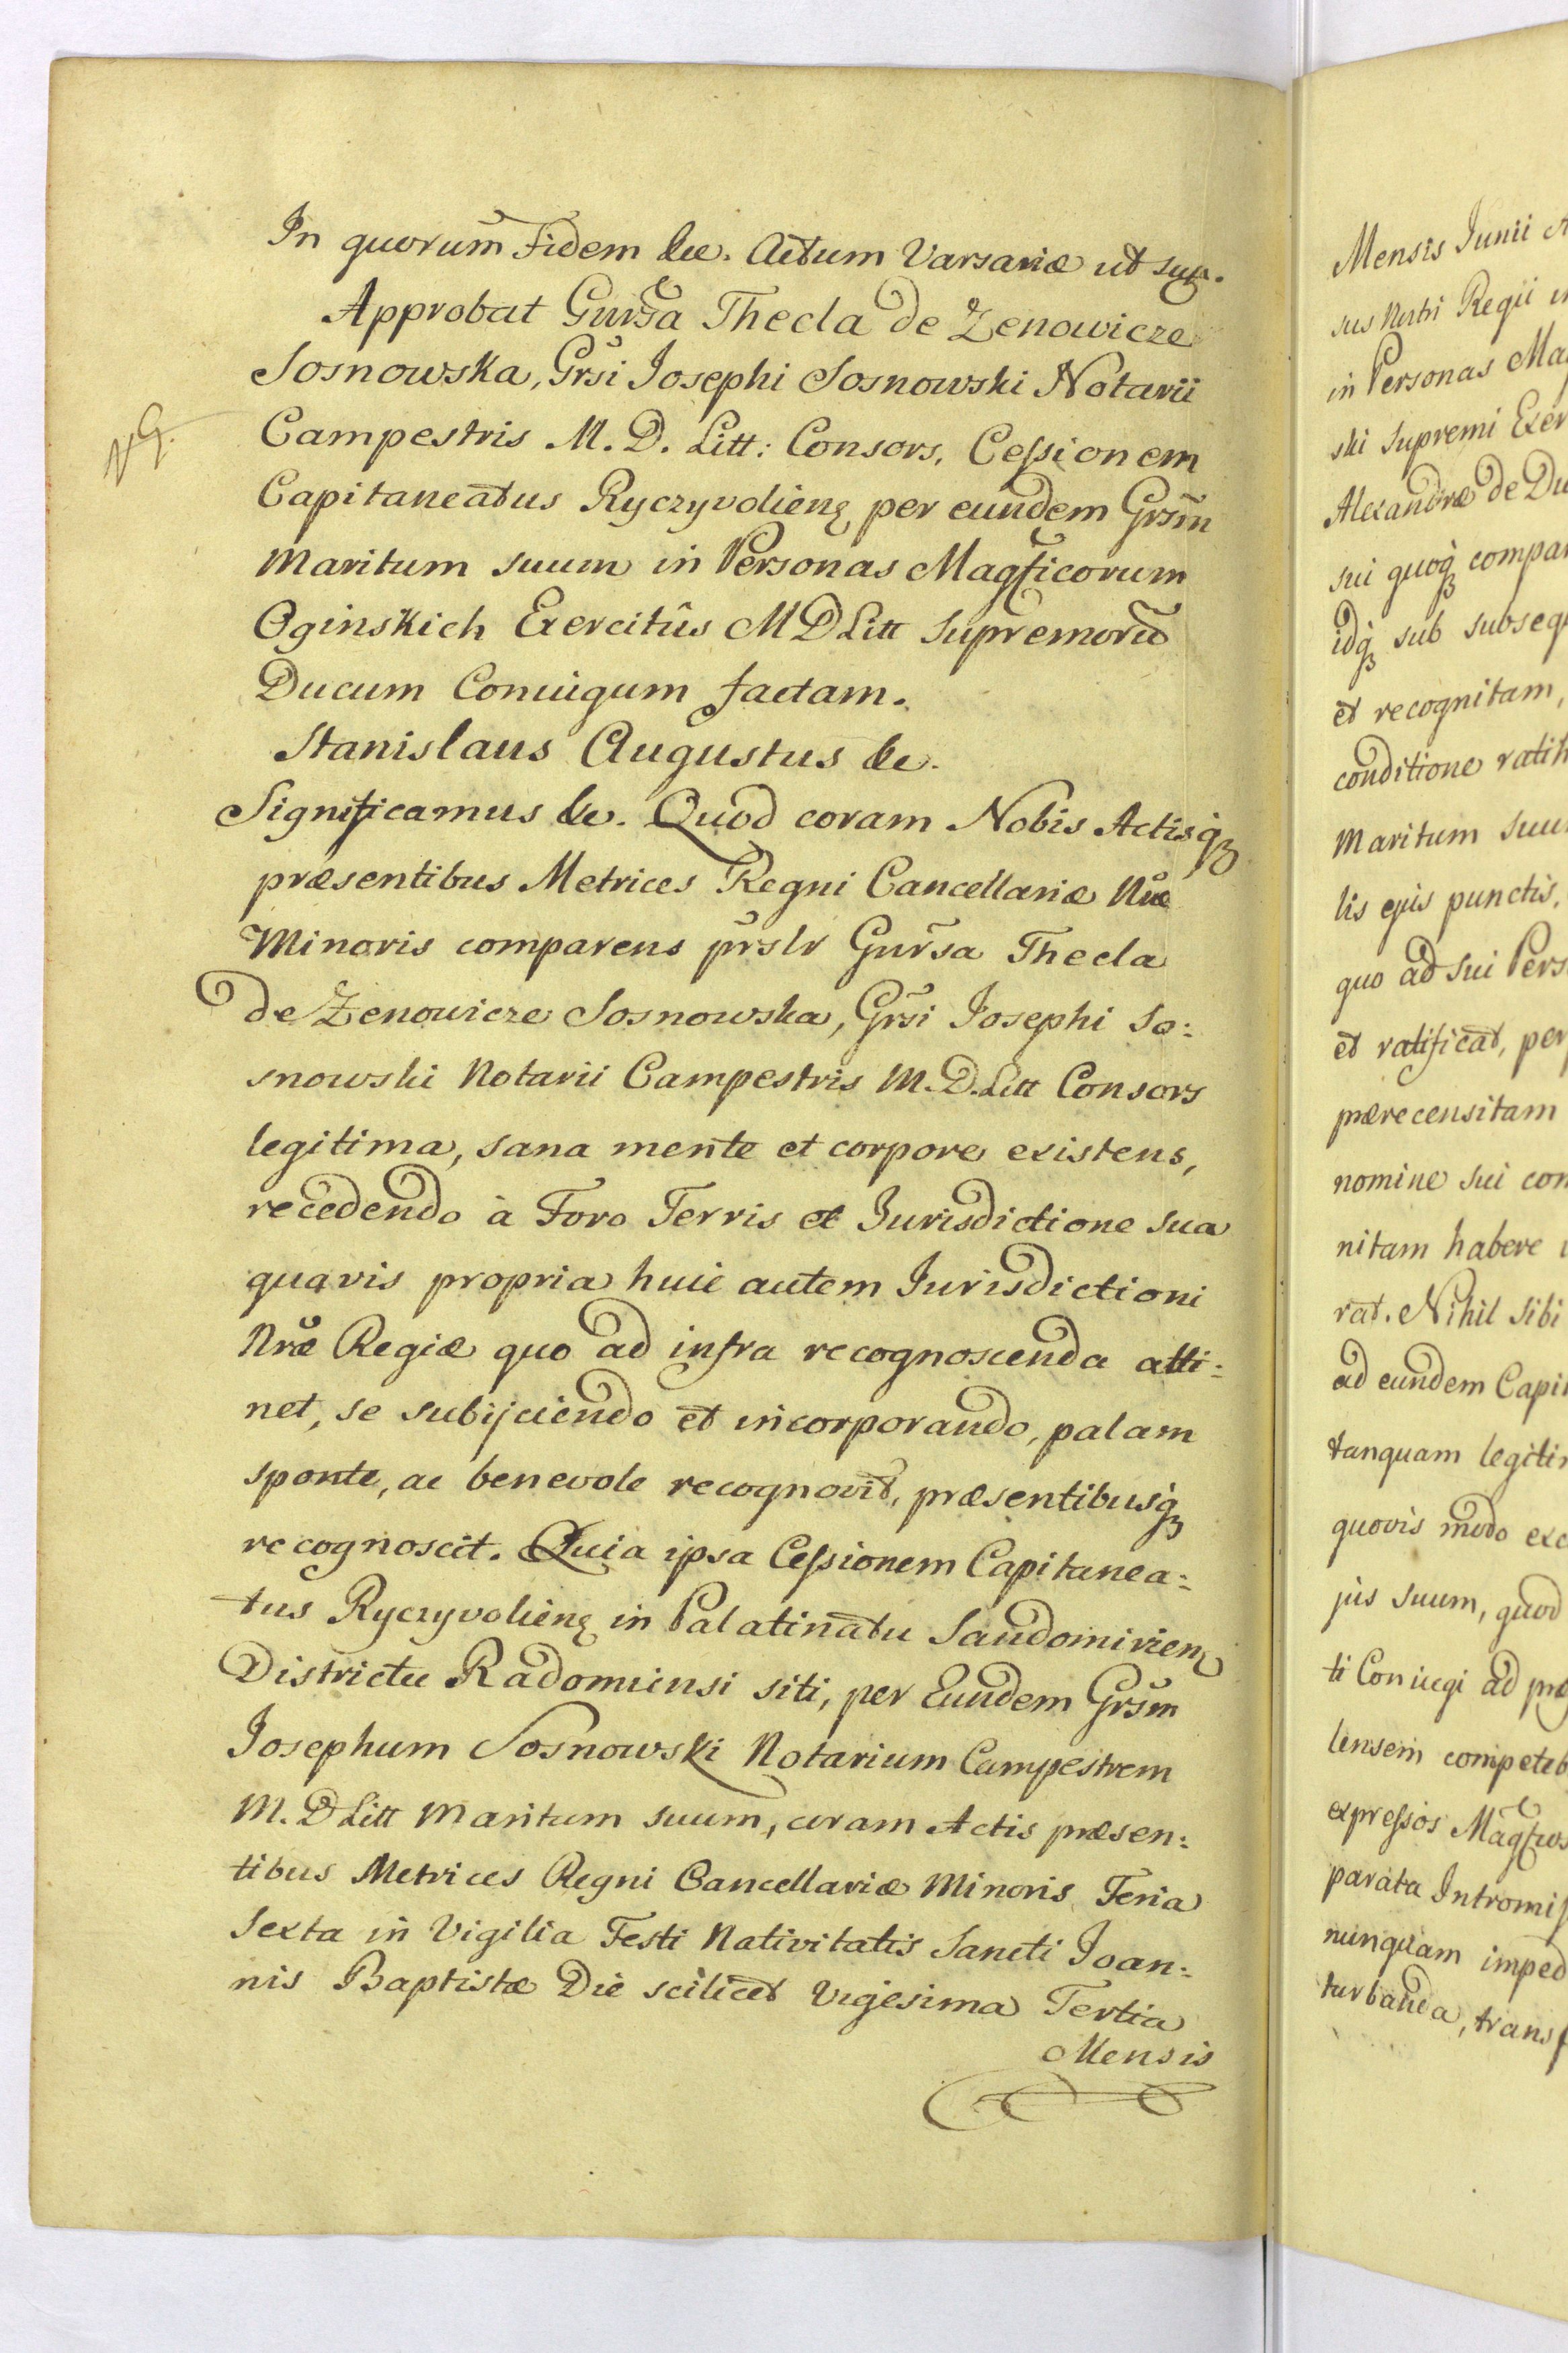 In quorum Fidem &c. Actum Varsaviæ ut sup.
Approbat Gnrsa Thecla de Zenowicze
Sosnowska, Grsi Josephi Sosnowski Notarii
NG.
Campestris M. D. Litt: Consors, Cessionem
Capitaneatus Ryczyvolienę per eundem Grsm
Maritum suum in Personas Magficorum
Oginskich Exercitûs M D Litt Supremorũ
Ducum Coniugum factam.
Stanislaus Augustus &c.
Significamus &c. Quod coram Nobis Actisqꝫ
præsentibus Metrices Regni Cancellariæ Nræ
Minoris comparens prslr Gnrsa Thecla
de Zenowicze Sosnowska, Grsi Josephi So:
snowski Notarii Campestris M. D. Litt Consors
legitima, sana mente et corpore existens,
recedendo à Foro Terris et Jurisdictione sua
quavis propria huic autem Jurisdictioni
Nræ Regiæ quo ad infra recognoscenda atti:
net, se subijciendo et incorporando, palam
sponte, ac benevole recognovit, præsentibusqꝫ
recognoscit. Quia ipsa Cessionem Capitanea:
tus Ryczyvolienę in Palatinatu Sandomirienę
Districtu Radomiensi siti, per Eundem Grsm
Josephum Sosnowski Notarium Campestrem
M. D Litt Maritum suum, coram Actis præsen:
tibus Metrices Regni Cancellariæ Minoris Feria
Sexta in Vigilia Festi Nativitatis Sancti Joan:
nis Baptistæ Die scilicet Vigesima Tertia
Mensis
Mensis Junii
sus Nostri Regii
in Personas
ski Supremi
Alexandræ de
sui quoqꝫ
idqꝫ sub
et recognitam,
conditione
Maritum
lis ejus punctis,
quo ad sui
et ratificat, per
prærecensitam
nomine sui
nitam habere
rat. Nihil sibi
ad eundem
tanquam
quovis modo
jus suum, quod
ti Coniugi ad
lensem
expressos
parata
nunquam
turbanda,